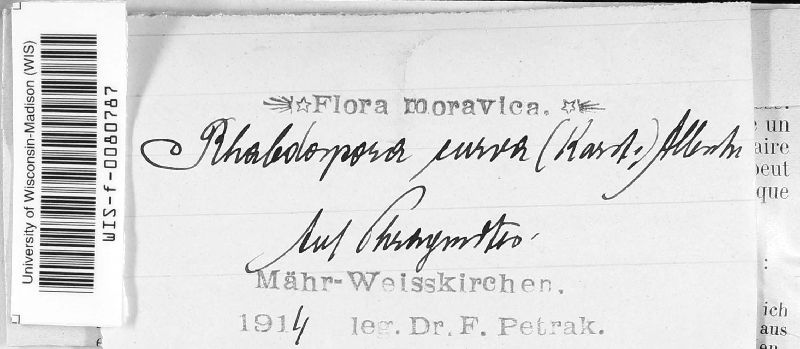 University of Wisconsin-Madison (WIS)
WIS-f-0080787
Flora moravica.
Rhabdospora curva (Karst.) Allesch.
Auf Phragmites.
Mähr-Weisskirchen.
1914 leg. Dr. F. Petrak.
un
aire
peut
que
:
ich
aus